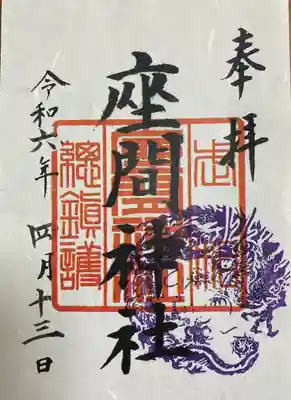 奉拝
座間神社
令和六年 四月十三日
總鎮護